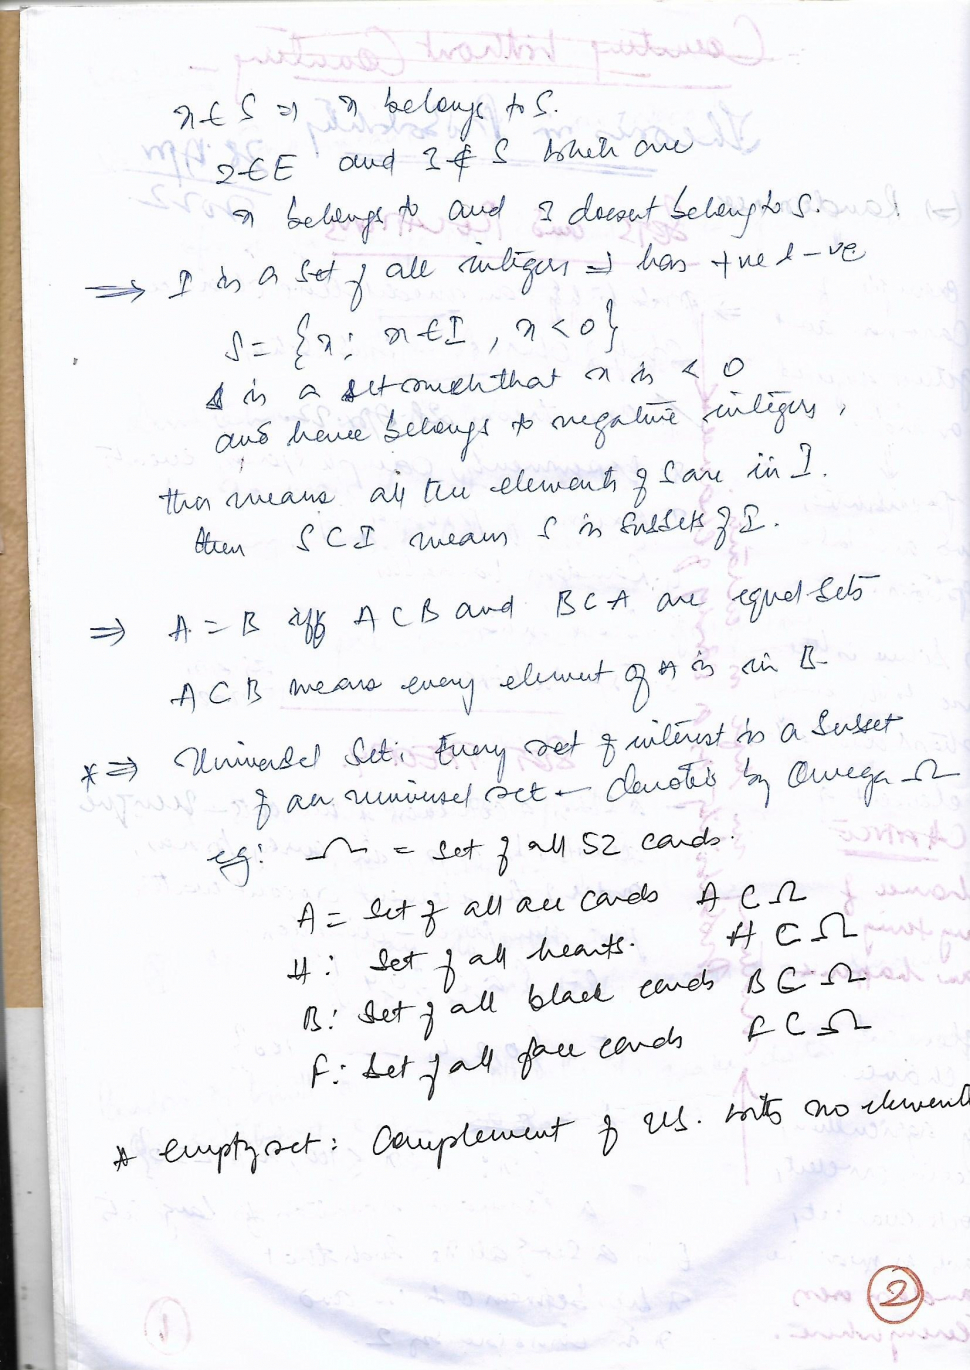 x ∈ S ⇒ x belongs to S.
2 ∈ E and 3 ∉ S which are
x belongs to and 3 doesnt belong to S.
⇒ I is a set of all integers ⇒ has +ve & -ve
S = {x: x ∈ I, x < 0}
S is a set such that x is < 0
and hence belongs to negative integers,
this means all the elements of S are in I.
then S ⊂ I means S is subsets of I.
⇒ A = B iff A ⊂ B and B ⊂ A are equal sets
A ⊂ B means every element of A is in B
* ⇒ Universal Set: Every set of interest is a subset
of an universal set - denoted by Omega Ω
eg: Ω = set of all 52 cards.
A = set of all ace cards A ⊂ Ω
H: set of all hearts. H ⊂ Ω
B: set of all black cards B ⊂ Ω
F: set of all face cards F ⊂ Ω
* empty set: Complement of US. with no elements
2